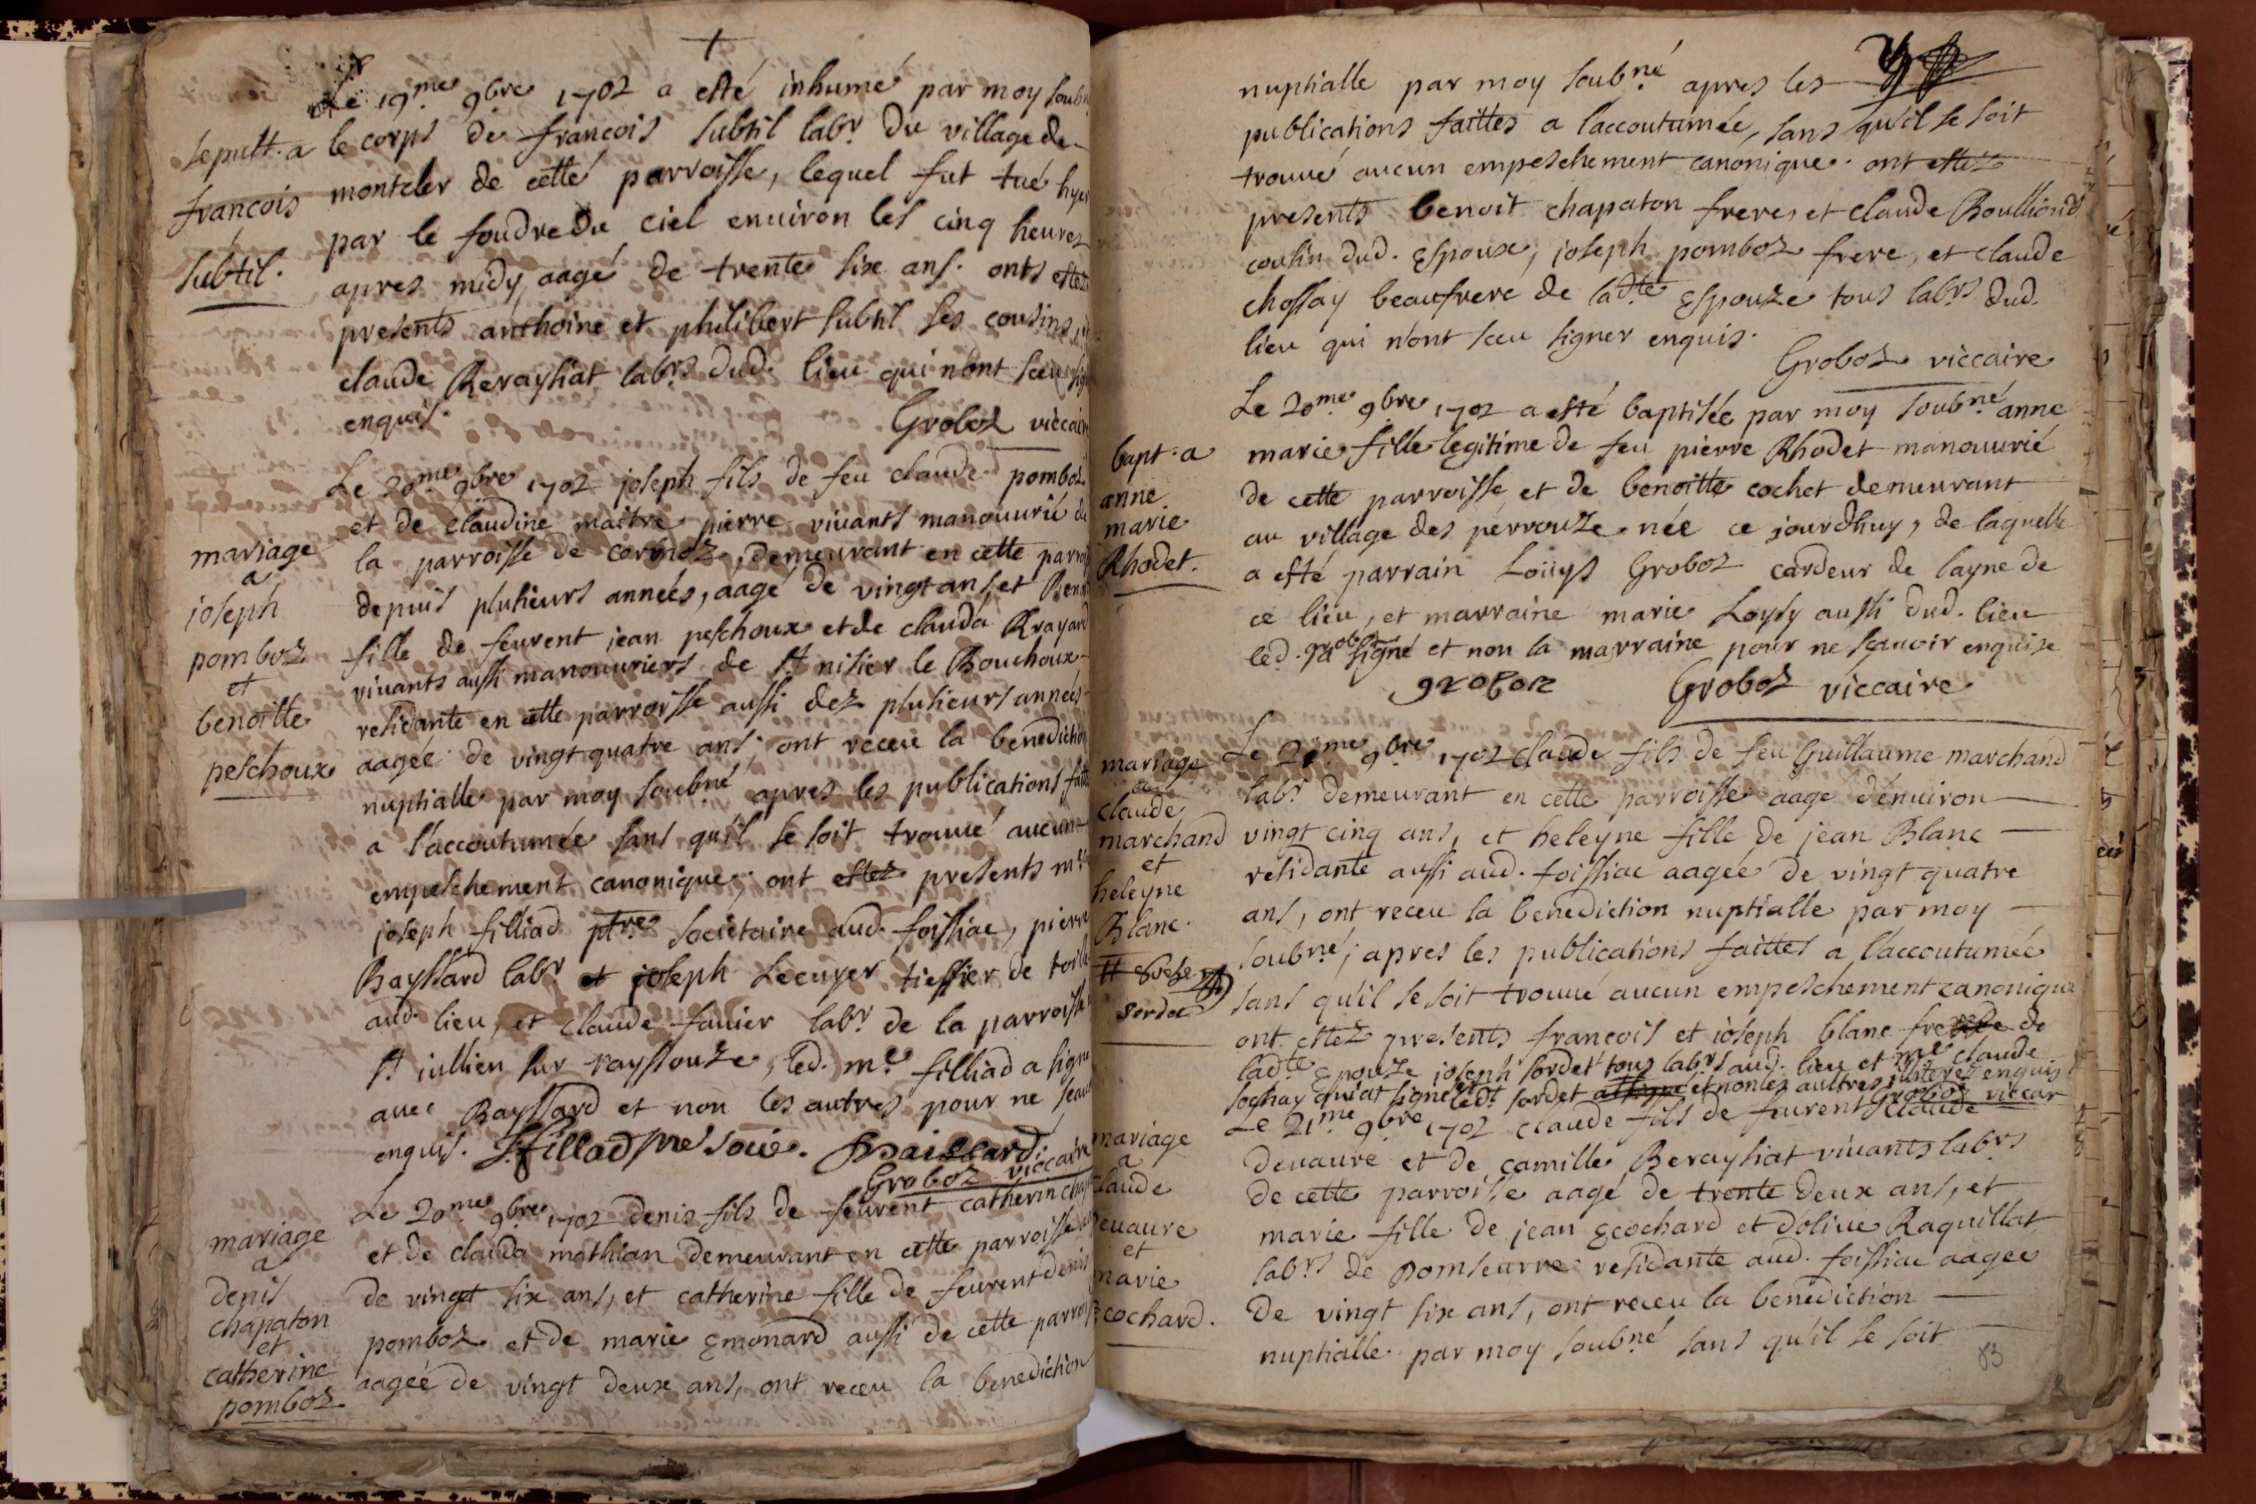 +
Le 19me 9bre 1702 a esté inhumé par moy soub
sepult. a le corps de francois subtil labr du village de
francois montcler de cette parroisse, lequel fut tué hyer
par le foudre du ciel enuiron les cinq heures
subtil. apres midy, aagé de trente six ans. onts estez
presents anthoine et philibert subtil ses cousins,
claude Berayhat labrs dud. lieu qui n'ont sceu
enquis. Groboz viccaire
Le 20me 9bre 1702 joseph fils de feu claude pomboz
et de claudine maitre pierre viuants manouurié de
mariage la parroisse de cormoz, demeurant en cette parroi
a depuis plusieurs années, aagé de vingt ans, et Ben
joseph fille de feurent jean peschoux et de clauda Brayard
pomboz viuants aussi manouuriers de St nisier le Bouchoux
et residante en cette parroisse aussi dez plusieurs années
benoitte aagée de vingt quatre ans; ont receu la benediction
peschoux nuptialle par moy soubné apres les publications faittes
a l'accoutumée sans qu'il se soit trouué aucun
empeschement canonique; ont estez presents mre
joseph filliad ptre societaire aud. foissiac, pierre
Bayssard labr et joseph Lecuyer tissier de toile
aud. lieu, et claude fauier labr de la parroisse
St iullien sur rayssouze, led. mre filliad a signé
auec Bayssard et non les autres pour ne scau
enquis. J filliad pre socié. Baissard.
Groboz viccaire
Le 20me 9bre 1702 denis fils de feurent catherin chap
mariage et de clauda mathian demeurant en cette parroisse
a de vingt six ans, et catherine fille de feurent denis
denis pomboz et de marie Emonard aussi de cette parroi
chapaton aagée de vingt deux ans, ont receu la benediction
et
catherine
pomboz
nuptialle par moy soubné apres les
publications faittes a l'accoutumée, sans qu'il se soit
trouué aucun empeschement canonique. ont estez
presents benoit chapaton frere, et claude Boulliond
cousin dud. Espoux, joseph pomboz frere, et claude
chossay beaufrere de ladte Espouze tous labrs dud.
lieu qui n'ont sceu signer enquis.
Groboz viccaire
Le 20me 9bre 1702 a esté baptisée par moy soubné anne
bapt. a marie fille legitime de feu pierre Rhodet manouurié
anne de cette parroisse et de benoitte cochet demeurant
marie au village des perrouze née ce jourdhuy, de laquelle
Rhodet. a esté parrain Loüys Groboz cardeur de layne de
ce lieu, et marraine marie Loysy aussi dud. lieu
led. groboz a signé et non la marraine pour ne scauoir enquise
groboz Groboz viccaire
Le 21me 9bre 1702 claude fils de feu Guillaume marchand
mariage labr demeurant en cette parroisse aagé d'enuiron
a claude
marchand vingt cinq ans, et heleyne fille de jean Blanc
et residante aussi aud. foissiac aagée de vingt quatre
heleyne ans, ont receu la benediction nuptialle par moy
Blanc. soubné, apres les publications faittes a l'accoutumée
sans qu'il se soit trouué aucun empeschement canonique
sordet
ont estez presents francois et ioseph blanc frere de
ladte Epouze joseph sordet tous labrs aud. lieu et mre claude
sochay qui at signé et led. sordet et non les aultres enquis
Groboz viccar
Le 21me 9bre 1702 claude fils de feurent claude
mariage deuaure et de camille Berayhat viuants labrs
a claude de cette parroisse aagé de trente deux ans, et
deuaure marie fille de jean Ecochard et d'oliue Raquillat
et labrs de Domseurre residante aud. foissiac aagée
marie de vingt six ans, ont receu la benediction
Ecochard. nuptialle par moy soubné sans qu'il se soit
83